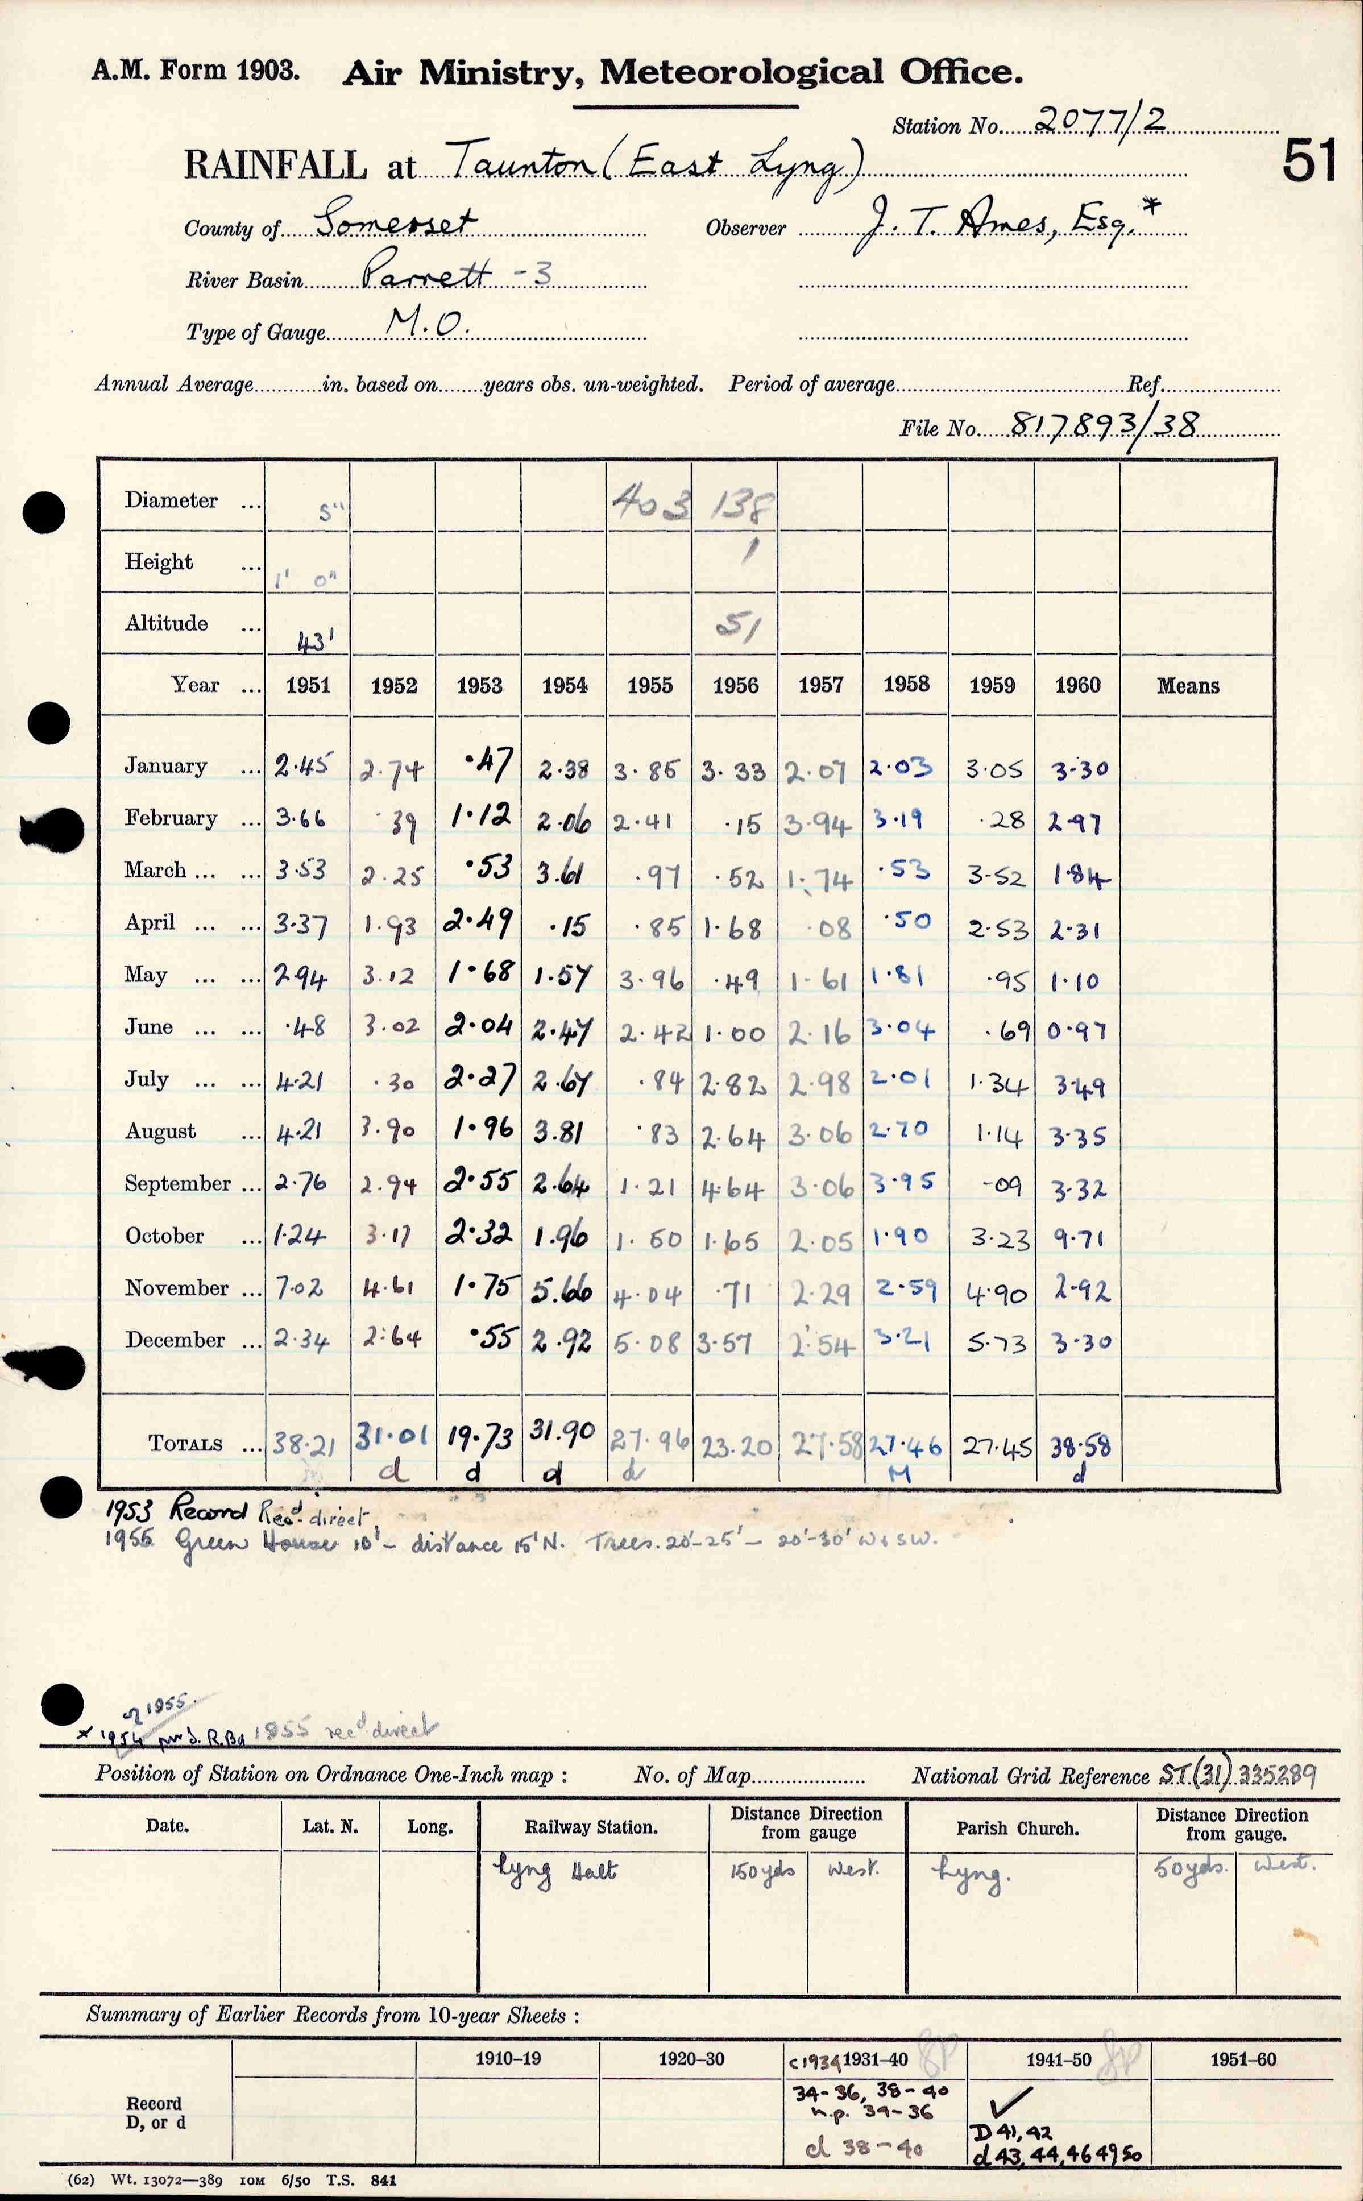 A.M. Form 1903. Air Ministry, Meteorological Office.
Station No. 2077/2
51
RAINFALL at Taunton (East Lyng)
County of Somerset Observer J. T. Ames, Esq.*
River Basin Parrett - 3
Type of Gauge M.O.
Annual Average in. based on years obs. un-weighted. Period of average Ref.
File No. 817893/38
Diameter ... 5" 403 138
Height ... 1' 0" 1
Altitude ... 43' 51
Year ... 1951 1952 1953 1954 1955 1956 1957 1958 1959 1960 Means
January ... 2.45 2.74 .47 2.38 3.85 3.33 2.07 2.03 3.05 3.30
February ... 3.66 .39 1.12 2.06 2.41 .15 3.94 3.19 .28 2.97
March ... ... 3.53 2.25 .53 3.61 .97 .52 1.74 .53 3.52 1.84
April ... ... 3.37 1.93 2.49 .15 .85 1.68 .08 .50 2.53 2.31
May ... ... 2.94 3.12 1.68 1.57 3.96 .49 1.61 1.81 .95 1.10
June ... ... .48 3.02 2.04 2.47 2.42 1.00 2.16 3.04 .69 0.97
July ... ... 4.21 .30 2.27 2.67 .84 2.82 2.98 2.01 1.34 3.49
August ... 4.21 3.90 1.96 3.81 .83 2.64 3.06 2.70 1.14 3.35
September ... 2.76 2.94 2.55 2.64 1.21 4.64 3.06 3.95 .09 3.32
October ... 1.24 3.17 2.32 1.96 1.50 1.65 2.05 1.90 3.23 9.71
November ... 7.02 4.61 1.75 5.66 4.04 .71 2.29 2.59 4.90 2.92
December ... 2.34 2.64 .55 2.92 5.08 3.57 2.54 3.21 5.73 3.30
TOTALS ... 38.21 31.01 19.73 31.90 27.96 23.20 27.58 27.46 27.45 38.58
d d d d M d
1953 Record Recd. direct
1955 Green House 10' - distance 15' N. Trees. 20'-25' - 20'-30' W & SW.
1955.
* 1954 R.Bd 1955 recd direct
Position of Station on Ordnance One-Inch map : No. of Map National Grid Reference ST.(31) 335289
Date. Lat. N. Long. Railway Station. Distance Direction from gauge Parish Church. Distance Direction from gauge.
Lyng Halt 150 yds West. Lyng. 50 yds. West.
Summary of Earlier Records from 10-year Sheets :
1910–19 1920–30 c1934 1931–40 1941–50 1951–60
Record D, or d
34-36, 38-40 ✓
n.p. 34-36 D 41, 42
d 38-40 d 43, 44, 46 49 50
(62) Wt. 13072—389 10M 6/50 T.S. 841